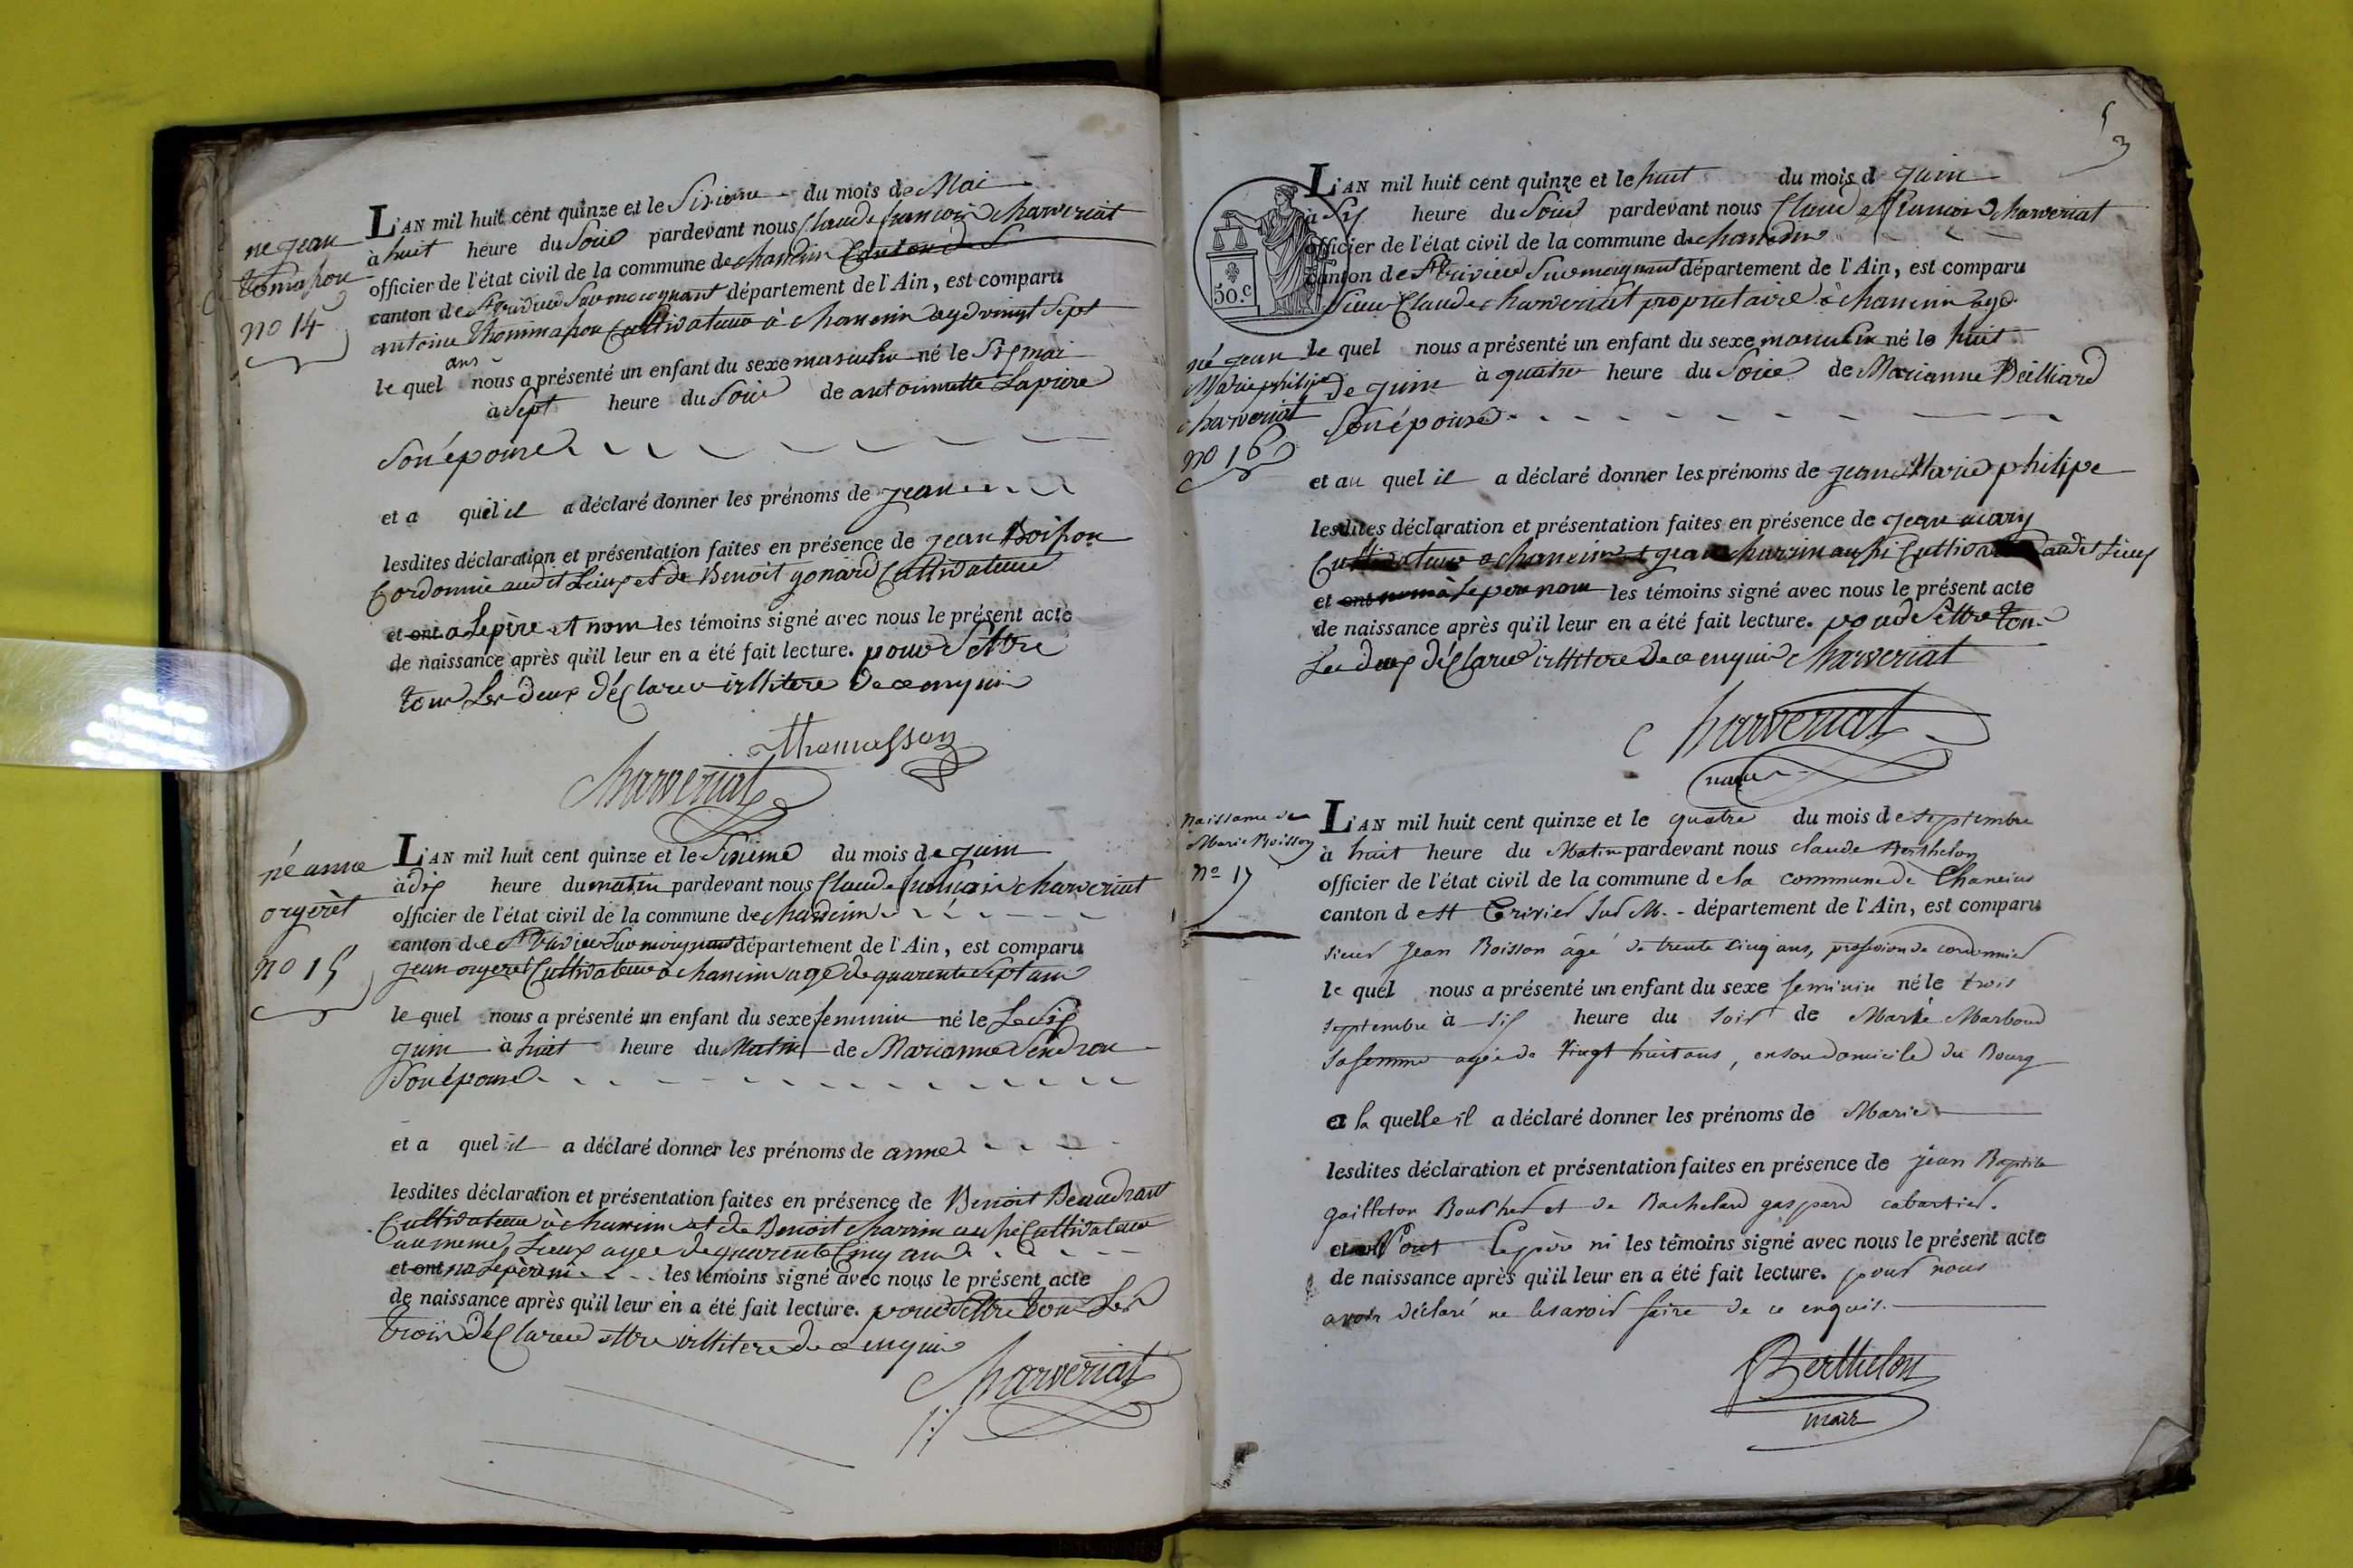 né jean
tomasson
no 14
L'AN mil huit cent quinze et le Sixieme du mois de Mai
à huit heure du Soir pardevant nous Claude francois charveriat
officier de l'état civil de la commune de chaneim
canton de St trivier Sur moignant département de l'Ain, est comparu
antoine Thommasson Cultivateur à chaneim agé vingt Sept
ans
le quel nous a présenté un enfant du sexe masculin né le Six mai
à Sept heure du Soir de antoinette Lapiere
Son épouse
et a quel il a déclaré donner les prénoms de jean
lesdites déclaration et présentation faites en présence de jean Boisson
Cordonnié audit Lieux et de Benoit gonard Cultivateur
et ont a Le père et nom les témoins signé avec nous le présent acte
de naissance après qu'il leur en a été fait lecture. pour Settre
tous Les deux déClaré illitere de ce enquis
Thomasson
Charveriat
né anne
orgeret
no 15
L'AN mil huit cent quinze et le Sixieme du mois de juin
à dix heure du matin pardevant nous Claude francois charveriat
officier de l'état civil de la commune de chaneim
canton de St trivier Sur moignant département de l'Ain, est comparu
jean orgeret Cultivateur à chaneim agé de quarente Sept ans
le quel nous a présenté un enfant du sexe feminin né le Le Six
juin à huit heure du Matin de Marianne Sendron
Son épouse
et a quel il a déclaré donner les prénoms de anne
lesdites déclaration et présentation faites en présence de Benoit Beaudrant
Cultivateur à chaneim et de Benoit charrin aussi Cultivateur
au meme Lieux agée de quarente Cinq ans
et ont na Le père ni les témoins signé avec nous le présent acte
de naissance après qu'il leur en a été fait lecture. pour Settre tous Les
trois déClaré ettre illitere de ce enquis
Charveriat
53
50.C
né jean
Marie philipe
charveriat
no 16
L'AN mil huit cent quinze et le huit du mois d juin
à Six heure du Soir pardevant nous Claude francois charveriat
officier de l'état civil de la commune de chaneim
canton de St trivier Sur moignant département de l'Ain, est comparu
Sieur Claude charveriat proprietaire à chaneim agé
le quel nous a présenté un enfant du sexe masculin né le huit
de juin à quatre heure du Soire de Marianne Beilliard
Son épouse
et au quel il a déclaré donner les prénoms de jean Marie philipe
lesdites déclaration et présentation faites en présence de jean mary
Cultivateur a chaneim et jean charrin aussi audit Lieux
et ont Le pere nom les témoins signé avec nous le présent acte
de naissance après qu'il leur en a été fait lecture. pour Settre tous
Les deux déClaré illitere de ce enquis charveriat
Charveriat
maire
Naissance de
Marie Boisson
no 17
L'AN mil huit cent quinze et le quatre du mois de septembre
à huit heure du Matin pardevant nous claude Berthelon
officier de l'état civil de la commune de la commune de Chaneins
canton de St Trivier Sur M. département de l'Ain, est comparu
sieur Jean Boisson âgé de trente cinq ans, profession de cordonnier
le quel nous a présenté un enfant du sexe feminin né le trois
septembre à six heure du soir de Marie Marboud
sa femme agée de vingt huit ans, en son domicile du Bourg
et la quelle il a déclaré donner les prénoms de Marie
lesdites déclaration et présentation faites en présence de jean Baptiste
gailleton Boucher et de Bachelard gaspard cabartier.
et n'ont Le père ni les témoins signé avec nous le présent acte
de naissance après qu'il leur en a été fait lecture. pour nous
avoir déclaré ne le savoir faire de ce enquis.
Berthelon
maire